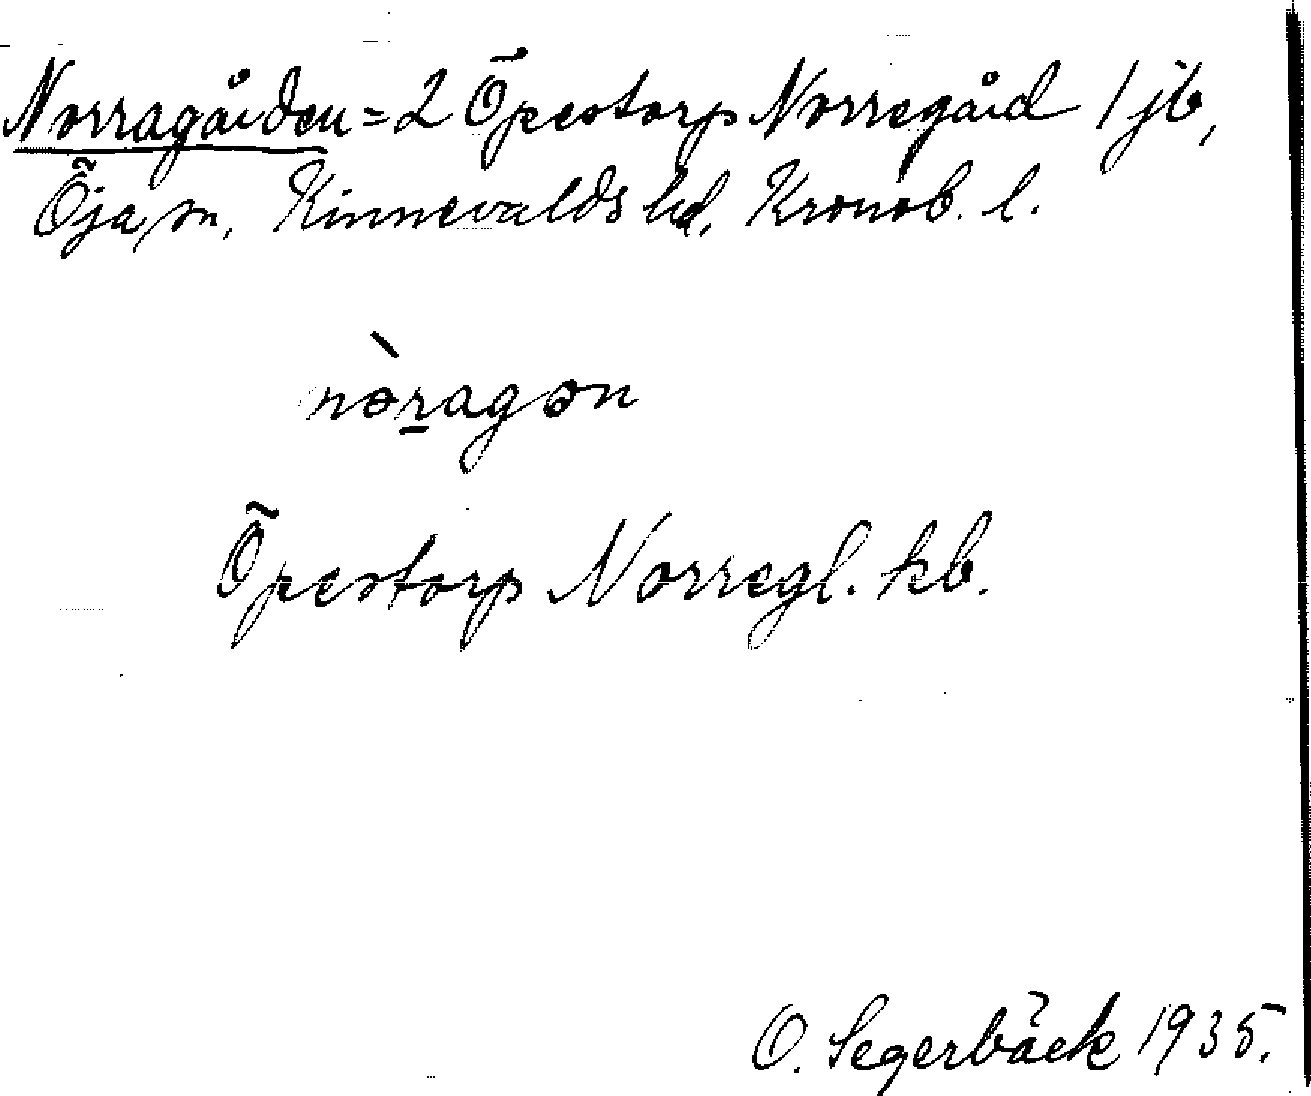 Norragården = 2 Öpestorp Norregård 1 jb,
Öja sn, Kinnevalds hd, Kronob. l.
nòragɔn
Öpestorp Norregl. kb.
O. Segerbäck 1935.